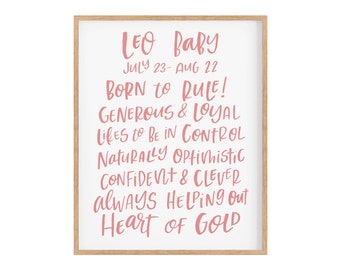 LEO BABY
JULY 23- AUG 22
BORN TO RULE!
GENEROUS & LOYAL
LIKES TO BE IN CONTROL
NATURALLY OPTIMISTIC
CONFIDENT & CLEVER
ALWAYS HELPING OUT
HEART OF GOLD